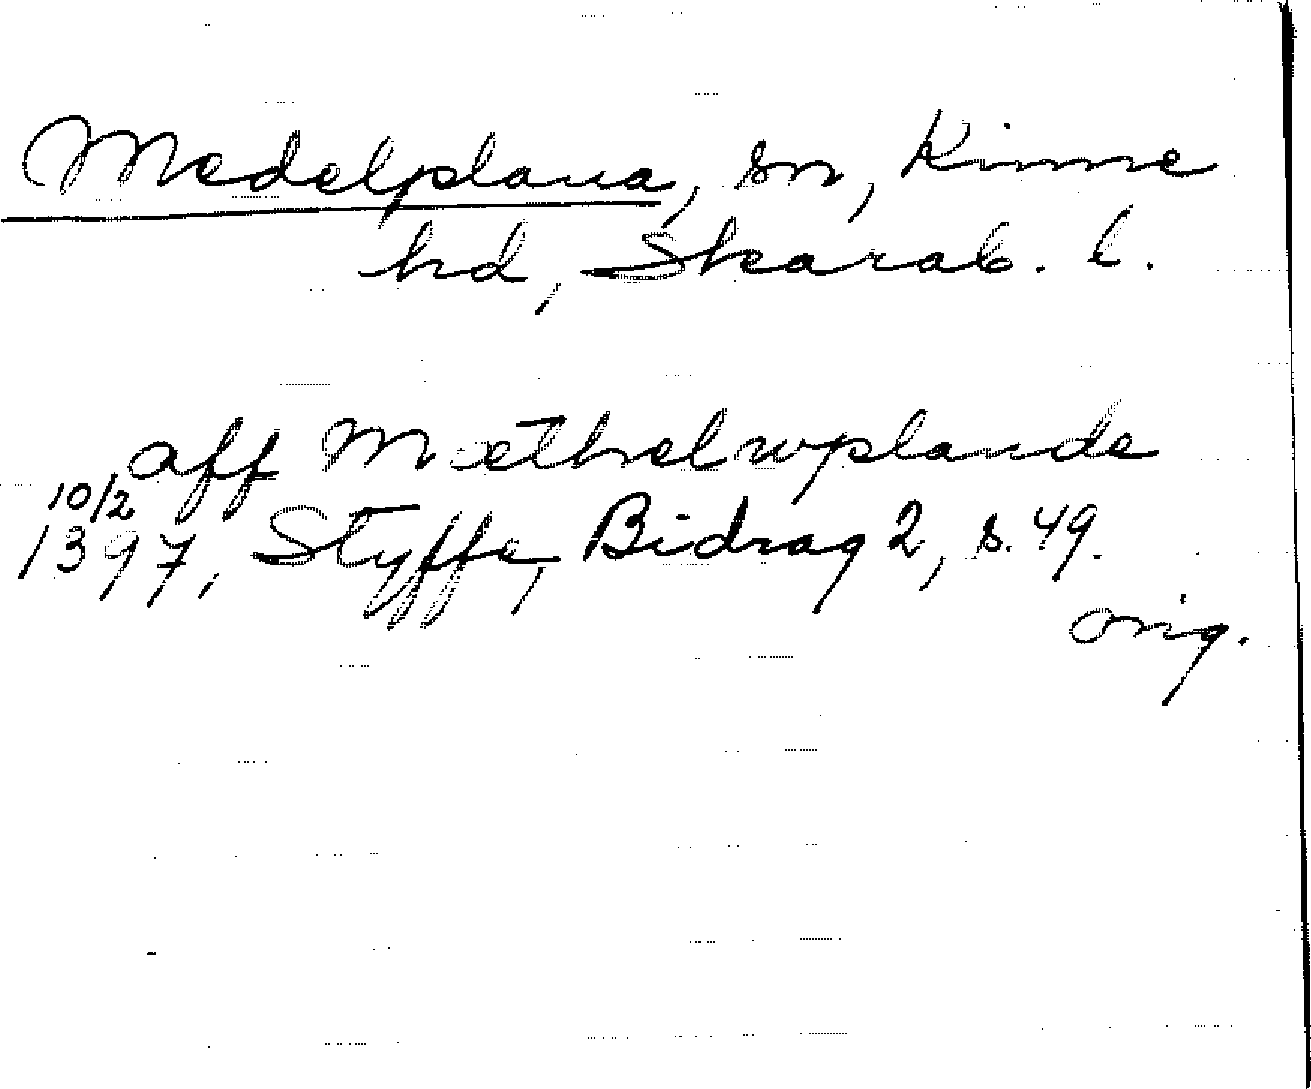 Medelplana, sn, Kinne
hd, Skarab. l.
aff Mæthelwplande
10/2
1397, Styffe, Bidrag 2, s. 49.
orig.